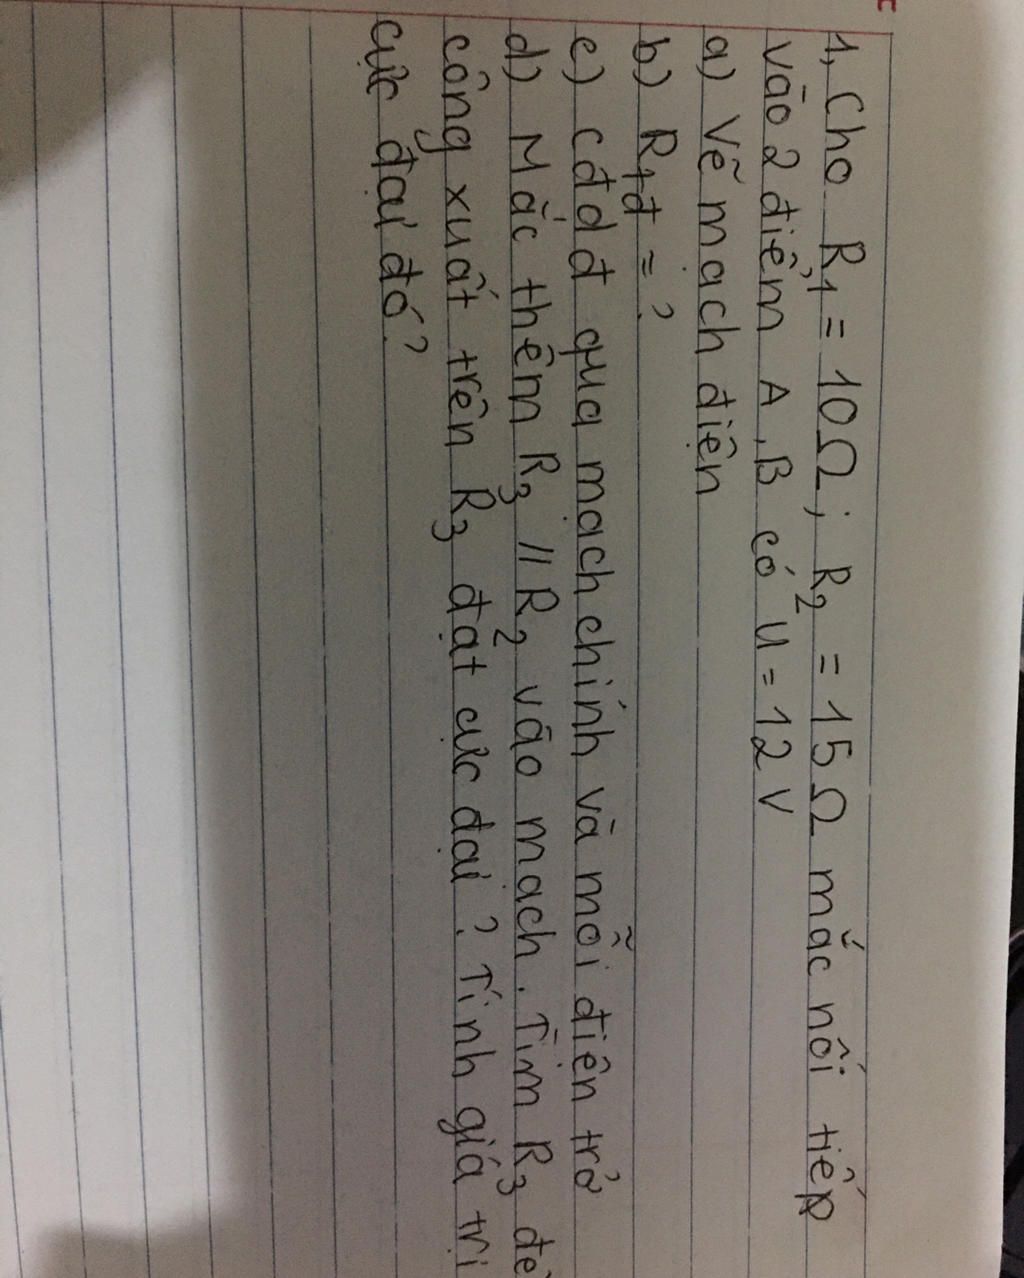 1, Cho R1 = 10Ω ; R2 = 15Ω mắc nối tiếp
vào 2 điểm A, B có U = 12 V
a) Vẽ mạch điện
b) Rtđ = ?
c) cđdđ qua mạch chính và mỗi điện trở
d) Mắc thêm R3 // R2 vào mạch. Tìm R3 để
công xuất trên R3 đạt cực đại ? Tính giá trị
cực đại đó ?